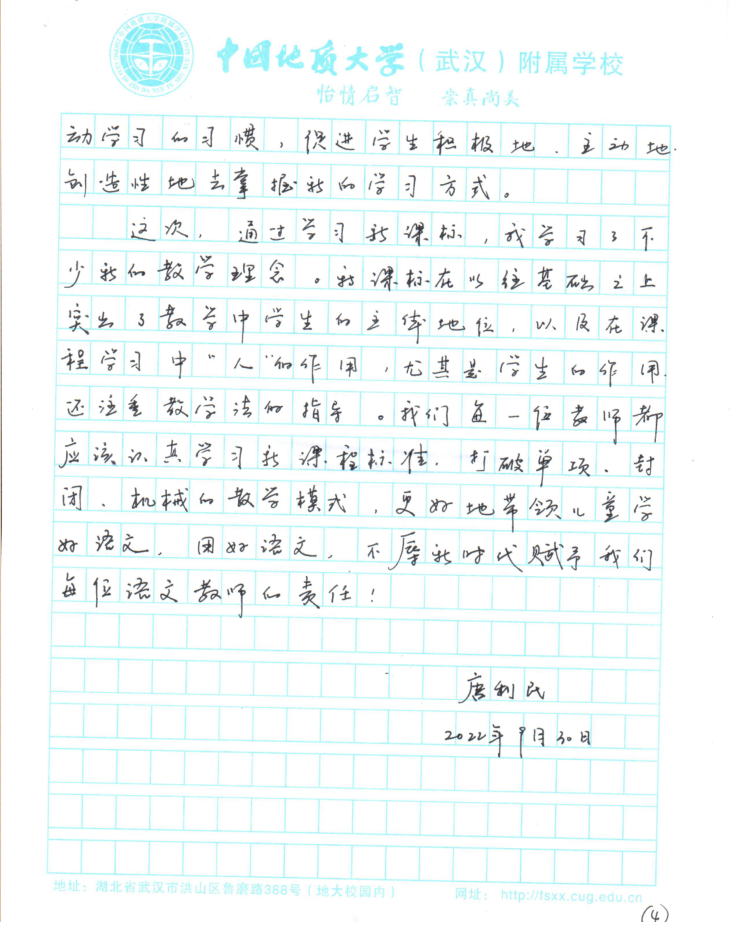 中国地质大学（武汉）附属学校
怡情启智 崇真尚美
动学习的习惯，促进学生积极地、主动地、
创造性地去掌握新的学习方式。
这次，通过学习新课标，我学习了不
少新的教学理念。新课标在以往基础之上
突出了教学中学生的主体地位，以及在课
程学习中“人”的作用，尤其是学生的作用。
还注重教学法的指导。我们每一位教师都
应该认真学习新课程标准，打破单项、封
闭、机械的教学模式，更好地带领儿童学
好语文，用好语文，不辱新时代赋予我们
每位语文教师的责任！
唐利民
2022年9月30日
地址：湖北省武汉市洪山区鲁磨路388号（地大校园内） 网址：http://fsxx.cug.edu.cn
(4)